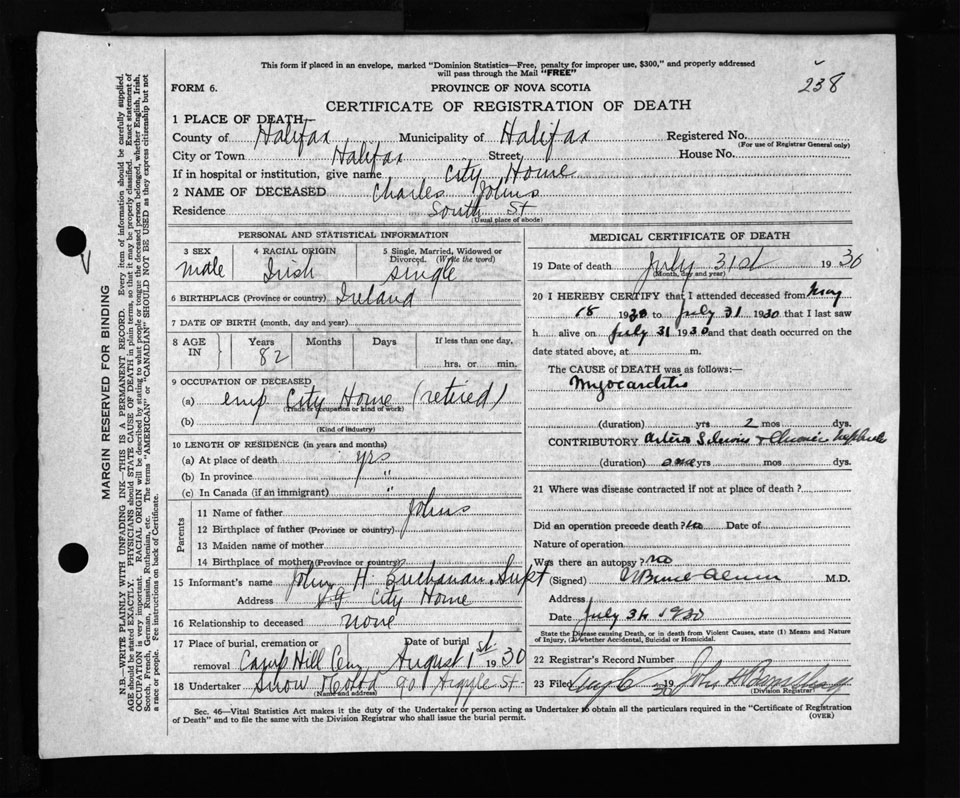 This form if placed in an envelope, marked "Dominion Statistics—Free, penalty for improper use, $300," and properly addressed
will pass through the Mail "FREE"
238
FORM 6.
PROVINCE OF NOVA SCOTIA
CERTIFICATE OF REGISTRATION OF DEATH
1 PLACE OF DEATH—
County of Halifax Municipality of Halifax Registered No.
(For use of Registrar General only)
City or Town Halifax Street House No.
If in hospital or institution, give name City Home
2 NAME OF DECEASED Charles Johns
Residence South St
(Usual place of abode)
PERSONAL AND STATISTICAL INFORMATION
3 SEX 4 RACIAL ORIGIN 5 Single, Married, Widowed or
Divorced. (Write the word)
Male Irish Single
6 BIRTHPLACE (Province or country) Ireland
7 DATE OF BIRTH (month, day and year)
8 AGE IN Years Months Days If less than one day,
82 hrs. or min.
9 OCCUPATION OF DECEASED
(a) emp City Home (retired)
(Trade or occupation or kind of work)
(b)
(Kind of industry)
10 LENGTH OF RESIDENCE (in years and months)
(a) At place of death yrs
(b) In province "
(c) In Canada (if an immigrant) "
Parents
11 Name of father Johns
12 Birthplace of father (Province or country)
13 Maiden name of mother
14 Birthplace of mother (Province or country)
15 Informant's name John H Buchanan Supt
Address City Home
16 Relationship to deceased none
17 Place of burial, cremation or Date of burial
removal Camp Hill Cem August 1st 1930
18 Undertaker Snow 90 Argyle St
(Name and address)
MEDICAL CERTIFICATE OF DEATH
19 Date of death July 31st 1930
(Month, day and year)
20 I HEREBY CERTIFY that I attended deceased from May
18 1930 to July 31 1930 that I last saw
h alive on July 31 1930 and that death occurred on
date stated above, at m.
The CAUSE of DEATH was as follows:—
Myocarditis
(duration) yrs 2 mos dys.
CONTRIBUTORY Arterio & Chronic
(duration) yrs mos dys.
21 Where was disease contracted if not at place of death?
Did an operation precede death? no Date of
Nature of operation
Was there an autopsy? no
(Signed) M.D.
Address
Date July 31 1930
State the Disease causing Death, or in death from Violent Causes, state (1) Means and Nature
of Injury, (2) whether Accidental, Suicidal or Homicidal.
22 Registrar's Record Number
23 Filed Aug 19 30 John
(Division Registrar)
Sec. 46—Vital Statistics Act makes it the duty of the Undertaker or person acting as Undertaker to obtain all the particulars required in the "Certificate of Registration
of Death" and to file the same with the Division Registrar who shall issue the burial permit. (OVER)
MARGIN RESERVED FOR BINDING
N.B.—WRITE PLAINLY WITH UNFADING INK—THIS IS A PERMANENT RECORD. Every item of information should be carefully supplied.
AGE should be stated EXACTLY. PHYSICIANS should STATE CAUSE OF DEATH in plain terms, so that it may be properly classified. Exact statement of
OCCUPATION is very important. RACIAL ORIGIN will be described by stating to what people or tongue the deceased person belonged, whether English, Irish,
Scotch, French, German, Russian, Ruthenian, etc. The terms "AMERICAN" or "CANADIAN" SHOULD NOT BE USED as they express citizenship but not
a race or people. Fee instructions on back of Certificate.